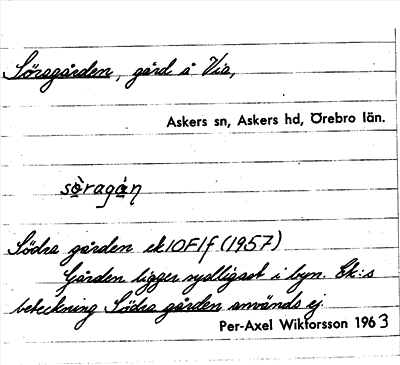 Söragården, gård å Via,
Askers sn, Askers hd, Örebro län.
sö̀ragȧ̀ṇ
Södra gården ek 10F1f (1957)
Gården ligger sydligast i byn. Ek:s
beteckning Södra gården används ej.
Per-Axel Wiktorsson 1963